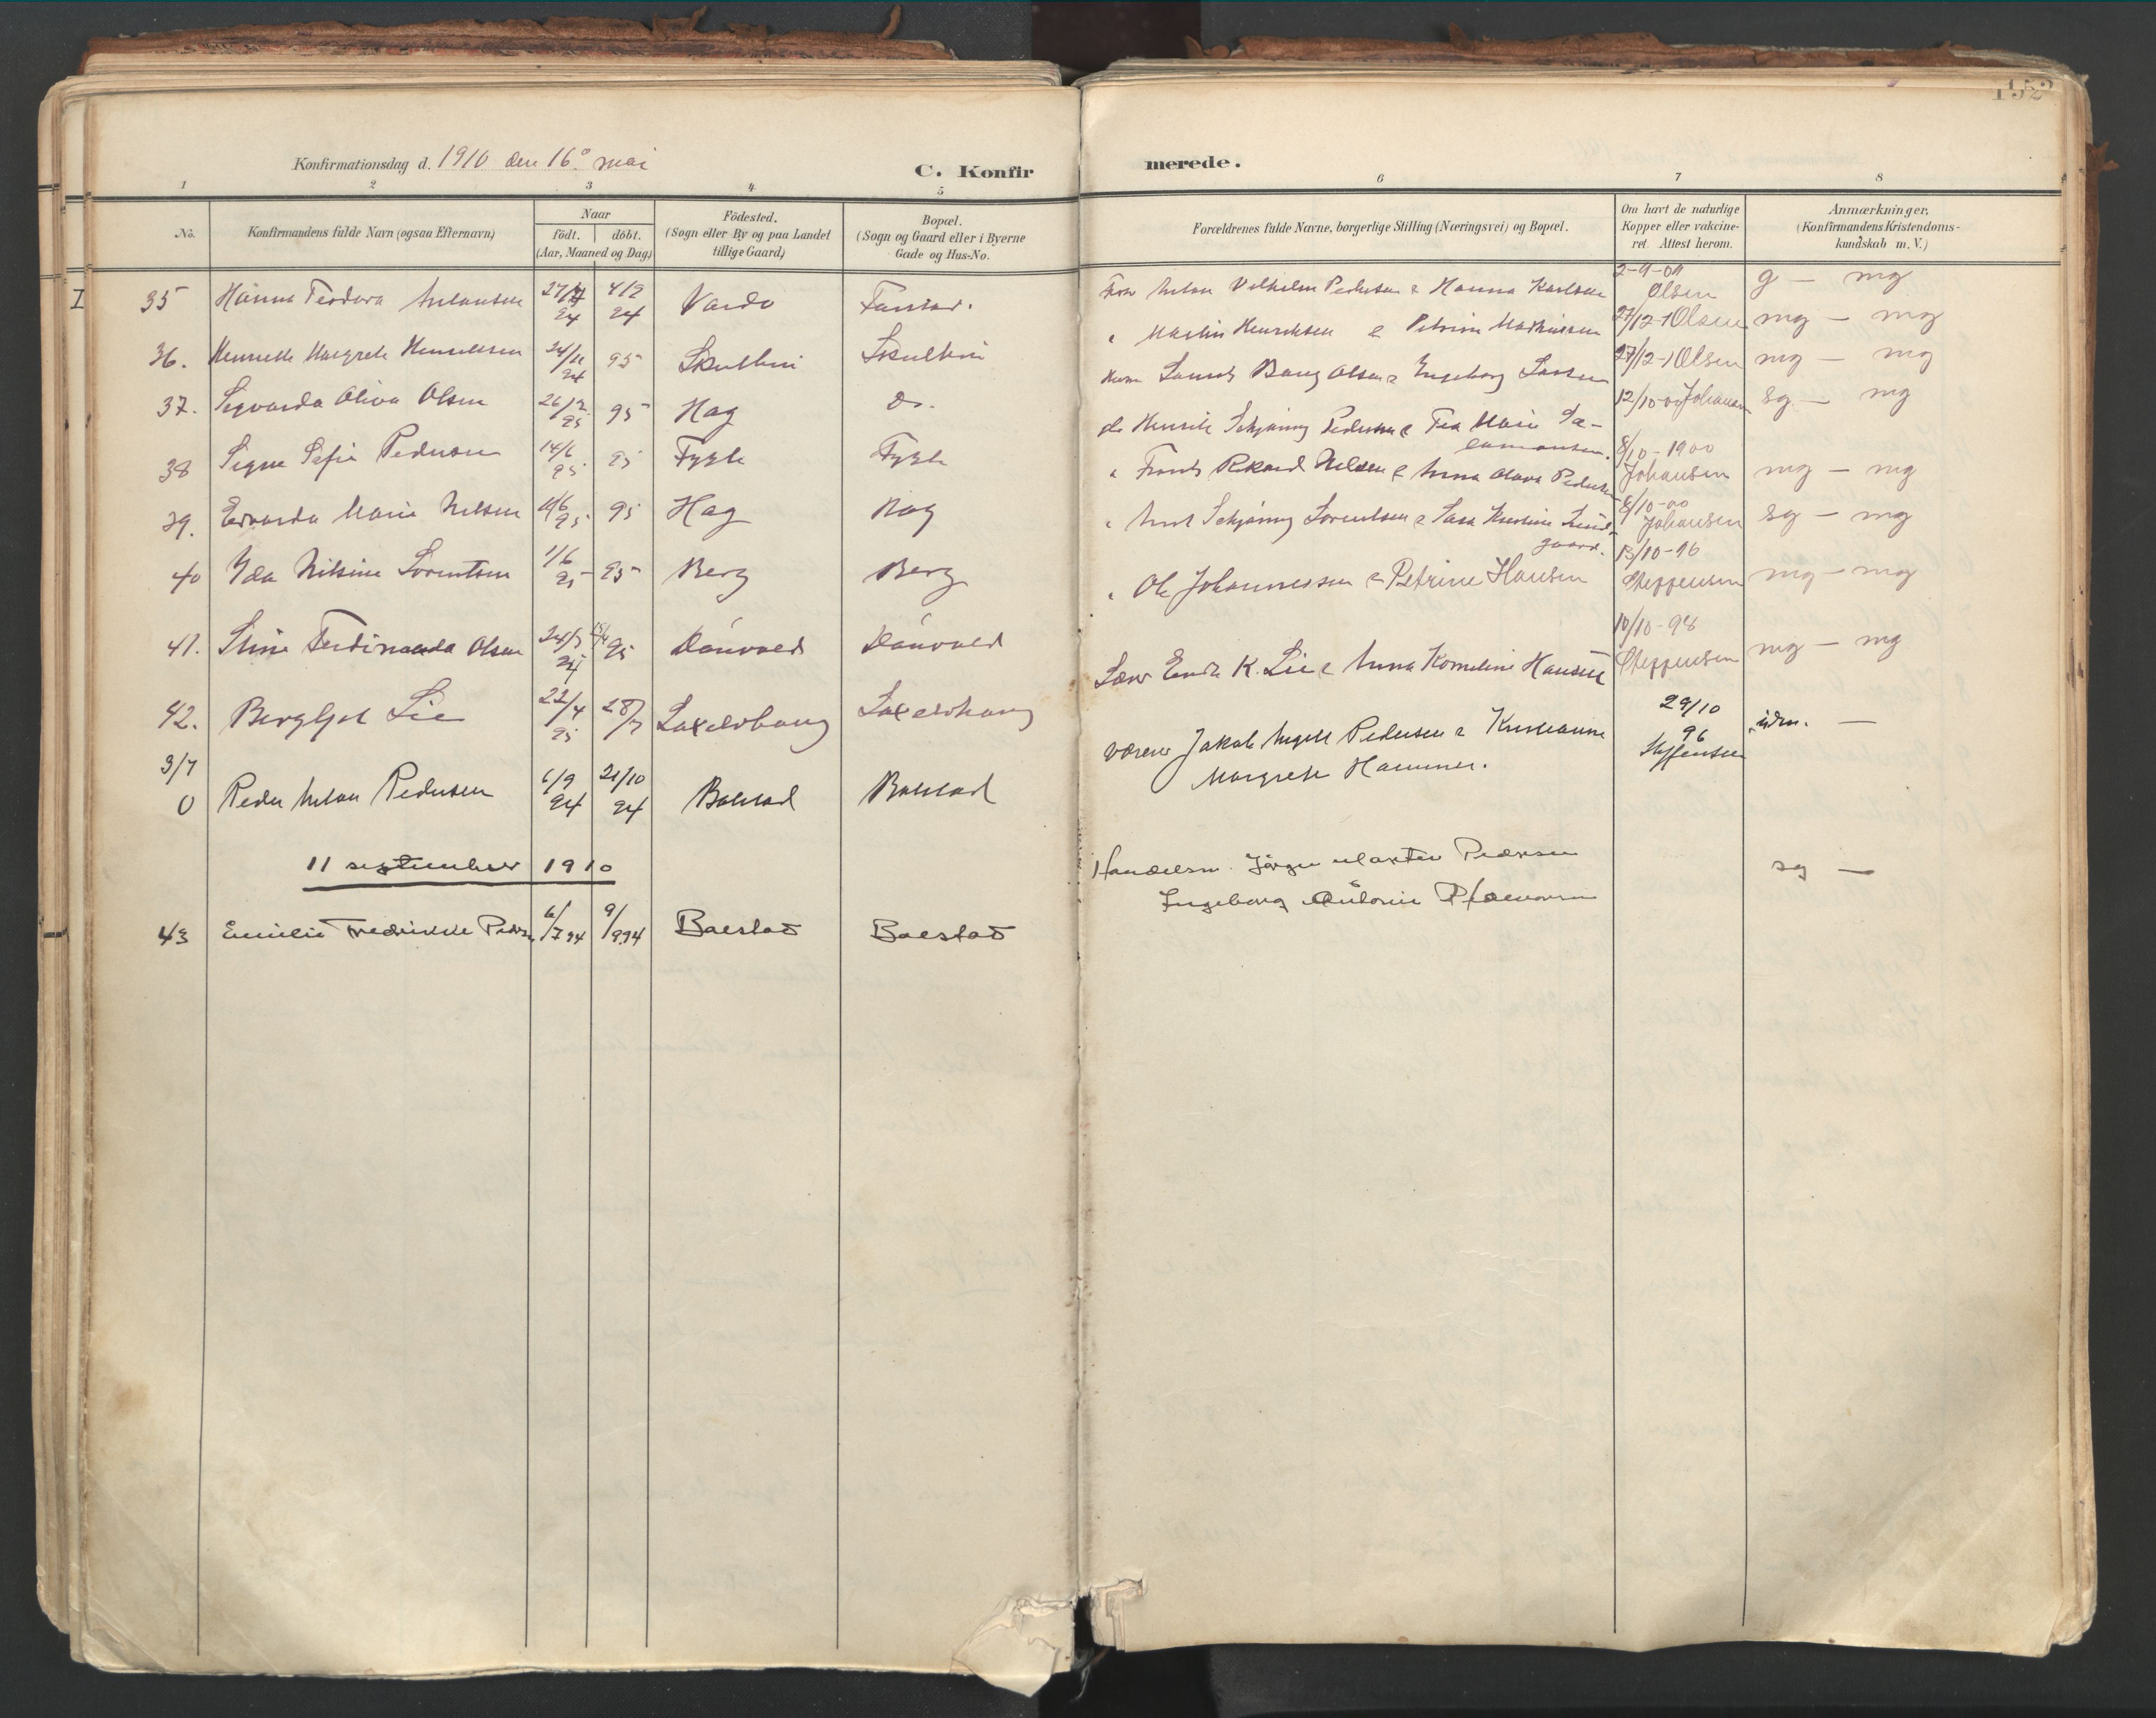 152
Konfirmationsdag d. 1910 den 16. mai
C. Konfir
merede.
1 2 3 4 5 6 7 8
No.
Konfirmandens fulde Navn (ogsaa Efternavn)
Naar
födt. döbt.
(Aar, Maaned og Dag)
Födested.
(Sogn eller By og paa Landet
tillige Gaard)
Bopæl.
(Sogn og Gaard eller i Byerne
Gade og Hus-No.
Forældrenes fulde Navne, borgerlige Stilling (Næringsvei) og Bopæl.
Om havt de naturlige
Kopper eller vakcine-
ret. Attest herom.
Anmærkninger.
(Konfirmandens Kristendoms-
kundskab m. V.)
I 35 Hanna Teodora Antonsen 94 4/2 94 Vardo Anton Vilhelm Pedersen & Hanna Karlsen Olsen g — mg
36. Henrikke Margrete Henriksen 24/11 94 95 Skulbru Skulbru Martin Henriksen & Petrine Mathissen 27/12-1 Olsen mg — mg
37. Sigvarda Oliva Olsen 26/2 95 95 Hag do. Laurits Bang Olsen & Ingeborg Larsen 27/12-1 Olsen mg — mg
38 Signe Sofie Pedersen 14/6 95 95 Fygle Fygle Henrik Schjöning Pedersen & Tea Marie Sa-
lamonsen. 12/10-00 Johansen sg — mg
39. Edvarda Marie Nilsen 4/6 95 95 Hag Hag Frants Rikard Nilsen & Anna Olava Pedersen 8/10-1900 Johansen mg — mg
40 Ida Nilsine Sorentsen 1/6 95 95 Berg Berg Arnt Schjöning Sorentsen & Sara Kristine Lund
gaard. 8/10-00 Johansen sg — mg
41. Stine Ferdinanda Olsen 95 Ole Johannessen & Petrine Hansen 13/10-96 Steffensen mg — mg
42. Bergljot Lie 22/4 95 28/7 Laxelvhaug Laxelvhaug Lærer K. Lie & Anna Korneline Hansen 10/10-98 Steffensen mg — mg
3/7
0 Peder Anton Pedersen 6/9 94 21/10 94 Balstad Balstad Jakob Angell Pedersen & Kristianne
Margrete Hammer. 29/10 96 Steffensen udm. —
11 september 1910
43 Emilie Fredrikke Peders. 6/7 94 9/9 94 Balstad Balstad Handelsm. Jörgen Marten Pedersen
Ingeborg Antonie sg —